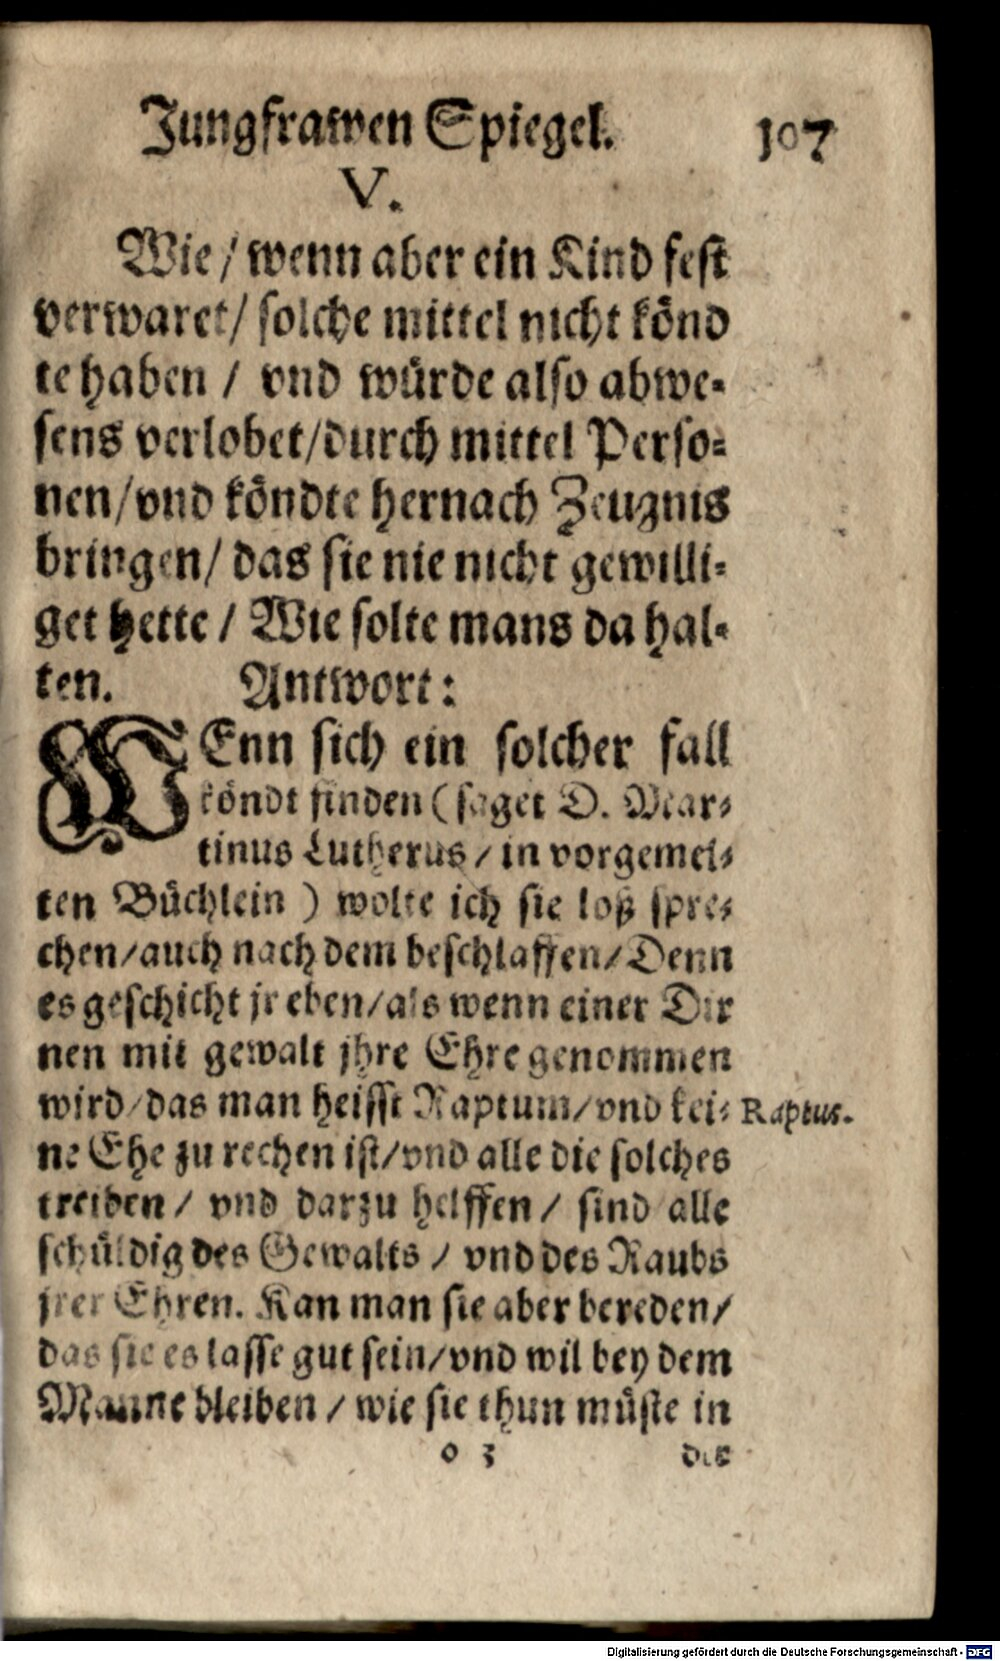 Jungfrawen Spiegel. 107
V.
Wie / wenn aber ein Kind fest
verwaret / solche mittel nicht könd
te haben / vnd würde also abwe-
sens verlobet / durch mittel Perso-
nen / vnd köndte hernach Zeugnis
bringen / das sie nie nicht gewilli-
get hette / Wie solte mans da hal-
ten. Antwort:
WEnn sich ein solcher fall
köndt finden (saget D. Mar-
tinus Lutherus / in vorgemel-
ten Büchlein) wolte ich sie loß spre-
chen / auch nach dem beschlaffen / Denn
es geschicht jr eben / als wenn einer Dir
nen mit gewalt jhre Ehre genommen
wird / das man heisst Raptum / vnd kei- Raptus.
ne Ehe zu rechen ist / vnd alle die solches
treiben / vnd darzu helffen / sind alle
schüldig des Gewalts / vnd des Raubs
jrer Ehren. Kan man sie aber bereden /
das sie es lasse gut sein / vnd wil bey dem
Manne bleiben / wie sie thun müste in
o 3
Digitalisierung gefördert durch die Deutsche Forschungsgemeinschaft - DFG